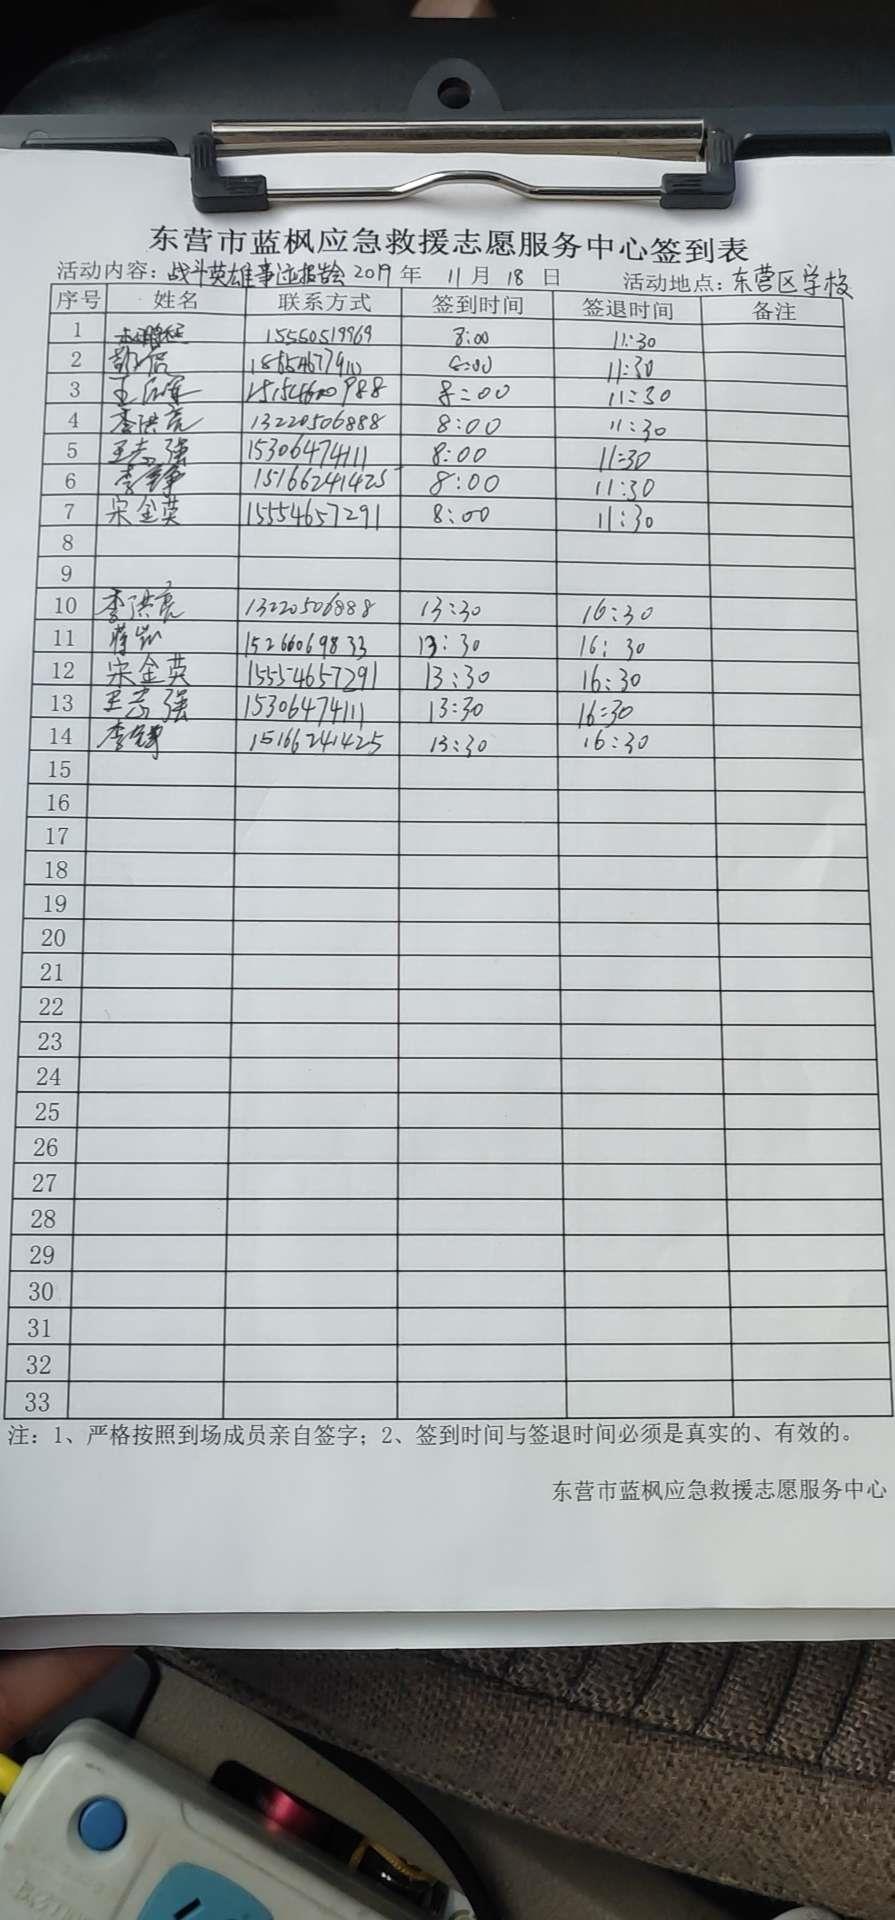 东营市蓝枫应急救援志愿服务中心签到表
活动内容：战斗英雄事迹报告会 2019年 11月 18日 活动地点：东营区学校
序号 姓名 联系方式 签到时间 签退时间 备注
1 15550519969 8:00 11:30
2 8:00 11:30
3 王 8:00 11:30
4 李洪亮 13220506888 8:00 11:30
5 王志强 15306474111 8:00 11:30
6 李 15166241425 8:00 11:30
7 宋金英 15554657291 8:00 11:30
8
9
10 李洪亮 13220506888 13:30 16:30
11 15266069833 13:30 16:30
12 宋金英 15554657291 13:30 16:30
13 王志强 15306474111 13:30 16:30
14 李 15166241425 13:30 16:30
15
16
17
18
19
20
21
22
23
24
25
26
27
28
29
30
31
32
33
注：1、严格按照到场成员亲自签字；2、签到时间与签退时间必须是真实的、有效的。
东营市蓝枫应急救援志愿服务中心